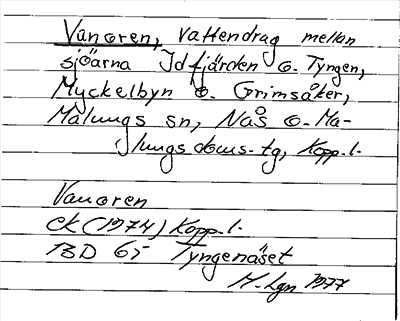 Vanoren, vattendrag mellan
sjöarna Idfjärden o. Tyngen,
Myckelbyn o. Grimsåker,
Malungs sn, Nås o. Ma-
lungs doms-tg, Kopp.l.
Vanoren
EK (1974) Kopp.l.
BD 65 Tyngenäset
M. Lgn 1977